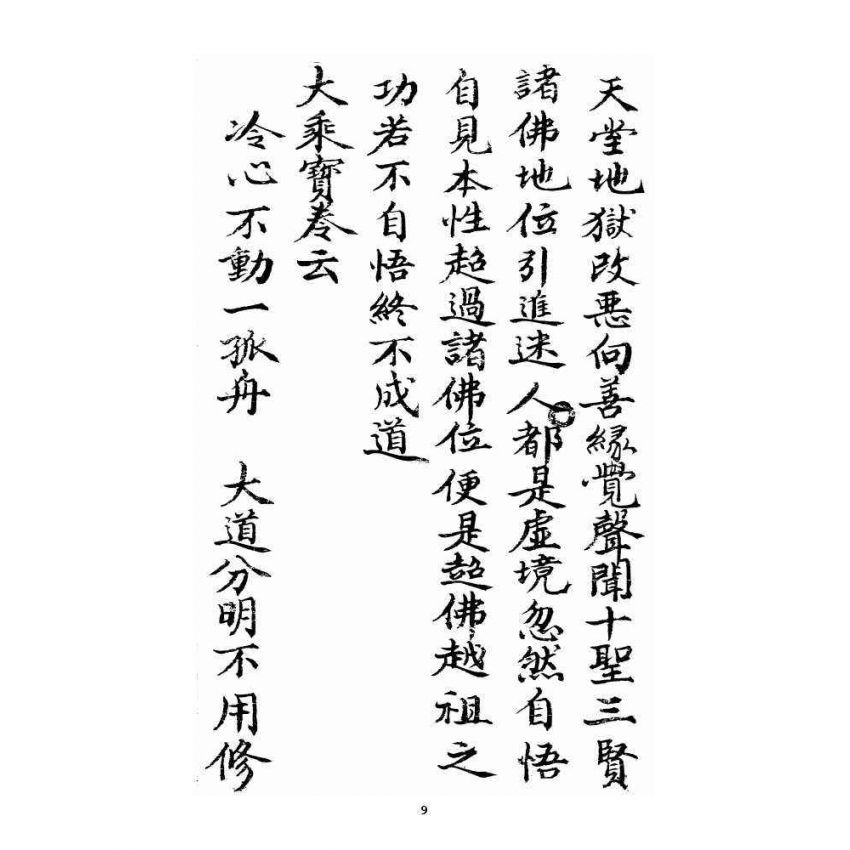 天堂地獄改悪向善緣覺聲聞十聖三賢
諸佛地位引進迷人都是虛境忽然自悟
自見本性超過諸佛位便是超佛越祖之
功若不自悟終不成道
大乘寶卷云
冷心不動一孤舟　大道分明不用修
9